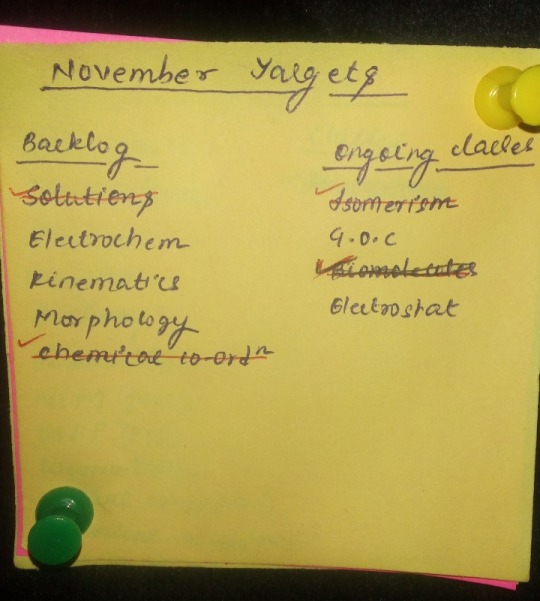 November Targets
Backlog
Solutions
Electrochem
Kinematics
Morphology
Chemical co-ordⁿ
Ongoing classes
Isomerism
G.O.C
Biomolecules
Electrostat